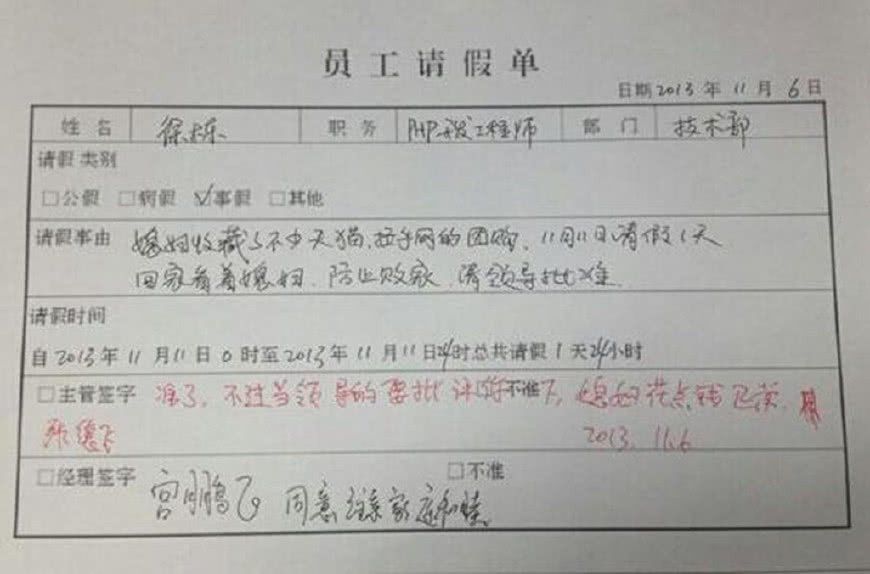 员工请假单
日期 2013 年 11 月 6 日
姓名 徐栋 职务 PHP开发工程师 部门 技术部
请假类别
□公假 □病假 ☑事假 □其他
请假事由 媳妇收藏了不少天猫、拉手网的团购，11月11日请假1天
回家看着媳妇，防止败家，请领导批准.
请假时间
自 2013 年 11 月 11 日 0 时至 2013 年 11 月 11 日 24 时总共请假 1 天 24 小时
□主管签字 准了，不过当领导的要批评你 不准 下，媳妇花点钱
2013.11.6
□经理签字 □不准
宫鹏飞 同意 家庭和睦。